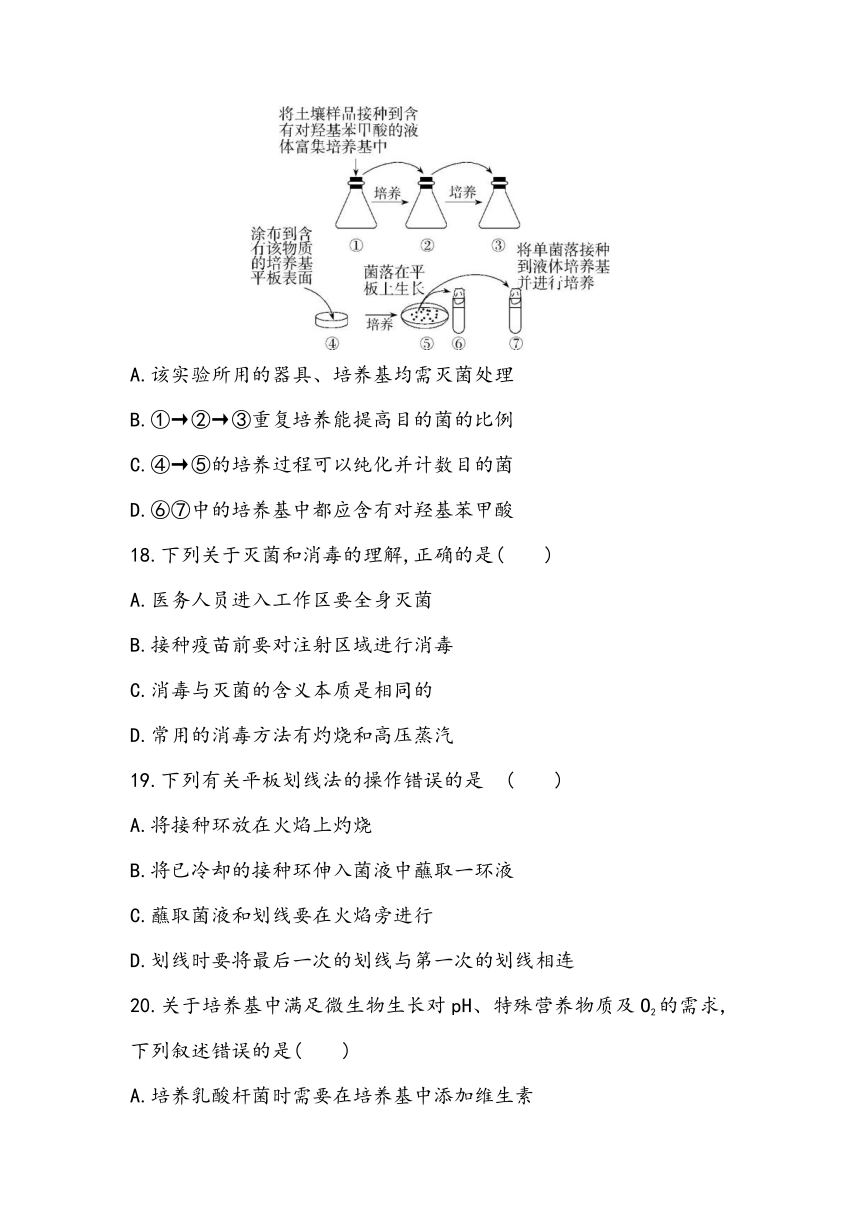 将土壤样品接种到含
有对羟基苯甲酸的液
体富集培养基中
培养
培养
①
②
③
涂布到含
有该物质
的培养基
平板表面
菌落在平
板上生长
将单菌落接种
到液体培养基
并进行培养
培养
④
⑤
⑥
⑦
A.该实验所用的器具、培养基均需灭菌处理
B.①→②→③重复培养能提高目的菌的比例
C.④→⑤的培养过程可以纯化并计数目的菌
D.⑥⑦中的培养基中都应含有对羟基苯甲酸
18.下列关于灭菌和消毒的理解,正确的是(　　)
A.医务人员进入工作区要全身灭菌
B.接种疫苗前要对注射区域进行消毒
C.消毒与灭菌的含义本质是相同的
D.常用的消毒方法有灼烧和高压蒸汽
19.下列有关平板划线法的操作错误的是 (　　)
A.将接种环放在火焰上灼烧
B.将已冷却的接种环伸入菌液中蘸取一环液
C.蘸取菌液和划线要在火焰旁进行
D.划线时要将最后一次的划线与第一次的划线相连
20.关于培养基中满足微生物生长对pH、特殊营养物质及O₂的需求,
下列叙述错误的是(　　)
A.培养乳酸杆菌时需要在培养基中添加维生素